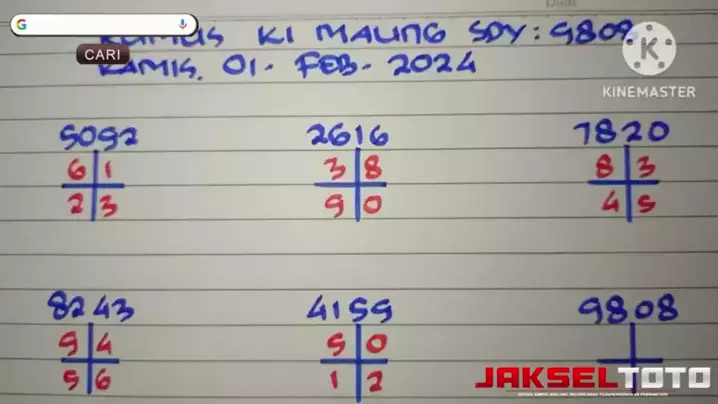 CARI
RUMUS KI MAUNG SDY: 9808
KAMIS. 01. FEB. 2024
KINEMASTER
5092
6 1
2 3
2616
3 8
9 0
7820
8 3
4 5
8243
9 4
5 6
4159
5 0
1 2
9808
JAKSELTOTO